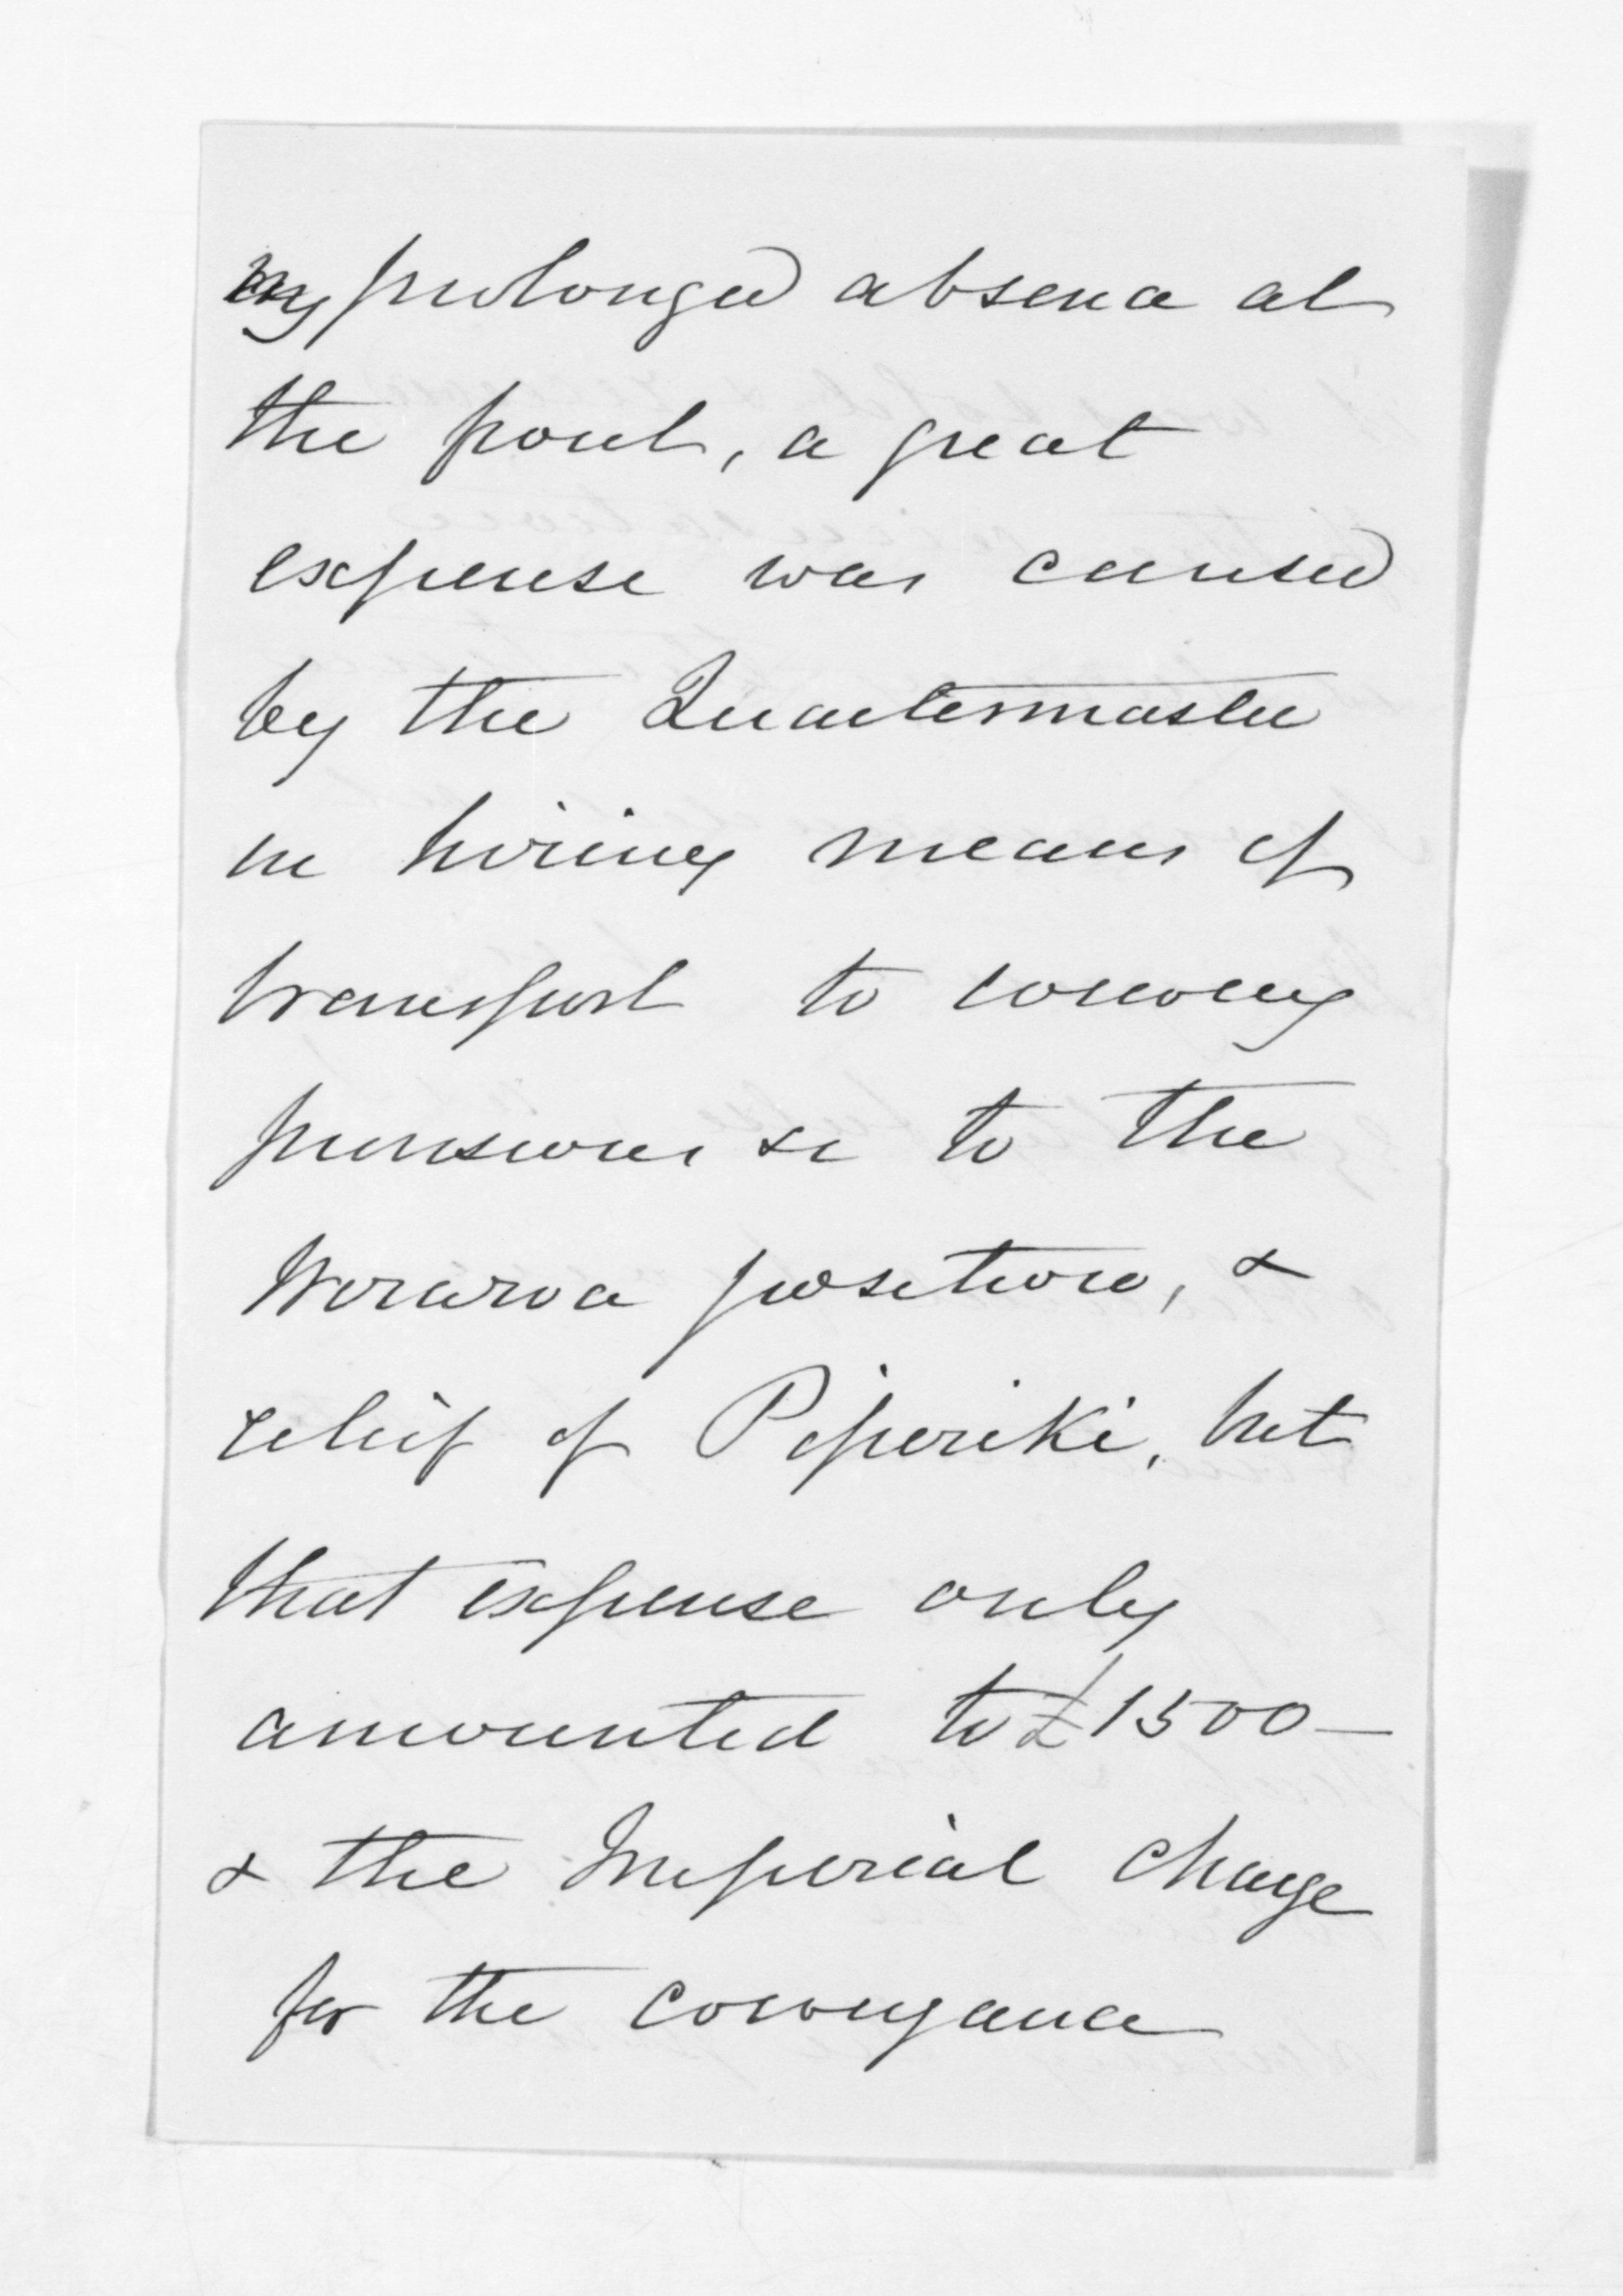 my prolonged absence at
the front, a great
expense was caused
by the Quartermaster
in hiring means of
transport to convey
provisions &c to the
Weraroa position, &
relief of Pipiriki, but
that expense only
amounted to £1500—
& the Imperial charge
for the conveyance